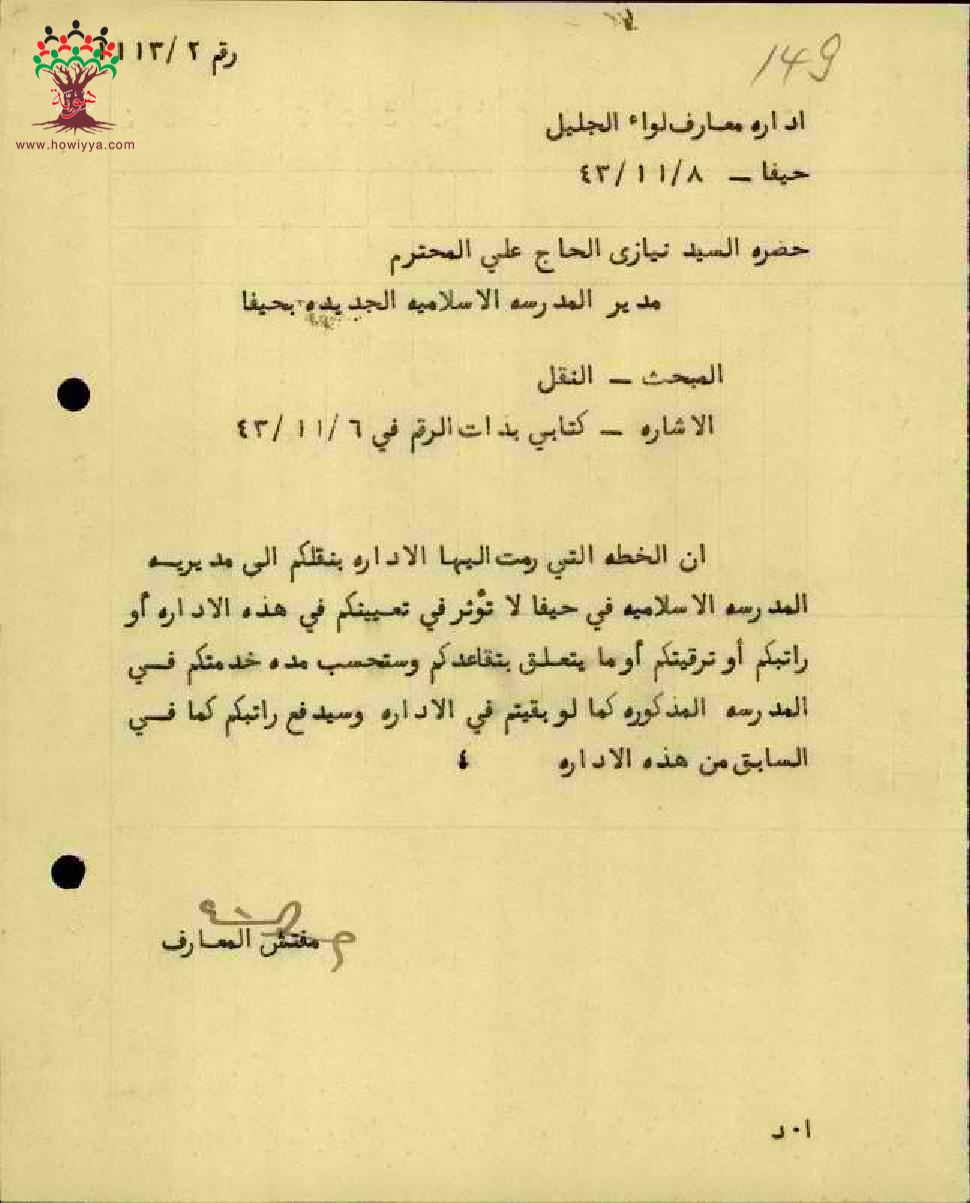 رقم ٢ /١١١٣
149
www.howiyya.com
هوية
اداره معارف لواء الجليل
حيفا – ٤٣/١١/٨
حضره السيد نيازى الحاج علي المحترم
مدير المدرسه الاسلاميه الجديده بحيفا
المبحث – النقل
الاشاره – كتابي بذات الرقم في ٤٣/١١/٦
ان الخطه التي رمت اليها الاداره بنقلكم الى مديريه
المدرسه الاسلاميه في حيفا لا تؤثر في تعيينكم في هذه الاداره أو
راتبكم أو ترقيتكم أو ما يتعلق بتقاعدكم وستحسب مده خدمتكم فــي
المدرسه المذكوره كما لو بقيتم في الاداره وسيدفع راتبكم كما فــي
السابق من هذه الاداره
مفتش المعارف
ا٠د